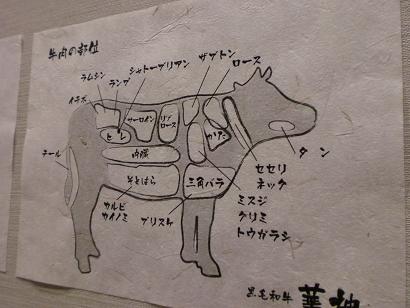 牛肉の部位
ザブトン
ロース
シャトーブリアン
ラムシン
ランプ
イチボ
サーロイン
リブロース
かた
ヒレ
タン
テール
内臓
そともばら
三角バラ
セセリ
ネック
ミスジ
クリミ
トウガラシ
カルビ
カイノミ
ブリスケ
黒毛和牛